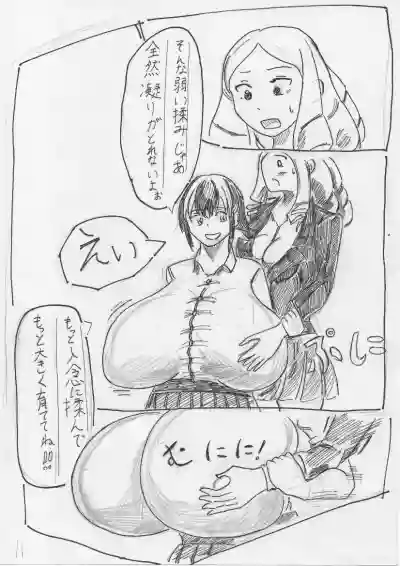 そんな弱い揉みじゃあ
全然凝りがとれないよぉ
えい
ぷにに
もっと入念に揉んで
もっと大きく育ててね!!!
むにに!
11